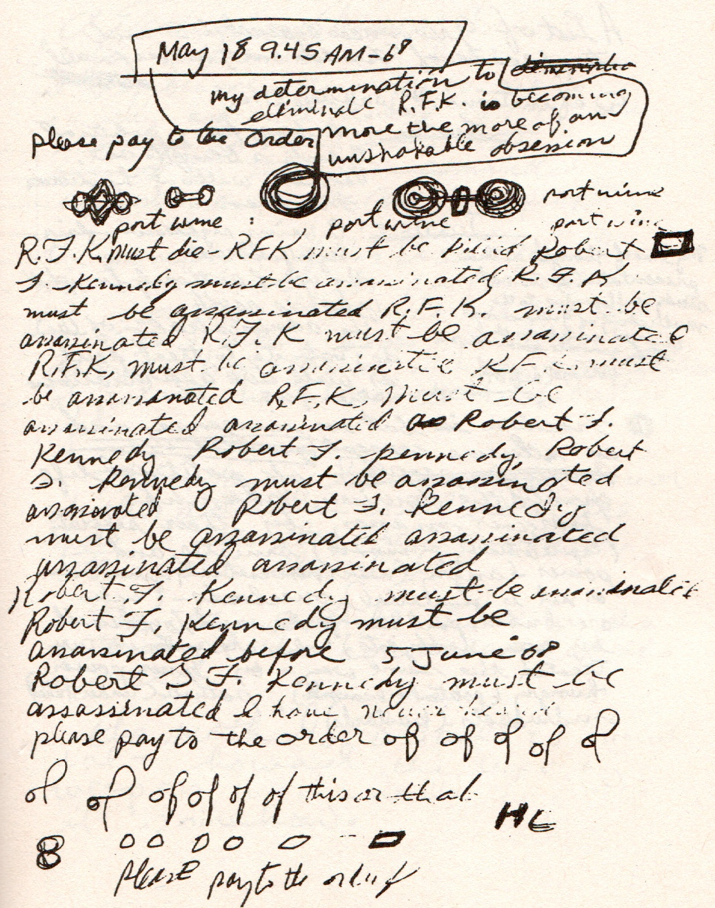 May 18 9.45 AM-68
my determination to
eliminate R.F.K. is becoming
please pay to the order
more the more of an
unshakable obsession
port wine
port wine : port wine port wine
R.F.K. must die - RFK must be killed Robert
F. Kennedy must be assassinated R.F.K.
must be assassinated R.F.K. must be
assassinated R.F.K must be assassinated
R.F.K. must be assassinated R.F.K. must
be assassinated R.F.K. must be
assassinated assassinated Robert F.
Kennedy Robert F. Kennedy Robert
F. Kennedy must be assassinated
assassinated Robert F. Kennedy
must be assassinated assassinated
assassinated assassinated
Robert F. Kennedy must be assassinated
Robert F. Kennedy must be
assassinated before 5 June '68
Robert F. Kennedy must be
assassinated I have never heard
please pay to the order of of of of of
of of of of of of this or that
HL
8 0 0 0 0 0
please pay to the order of